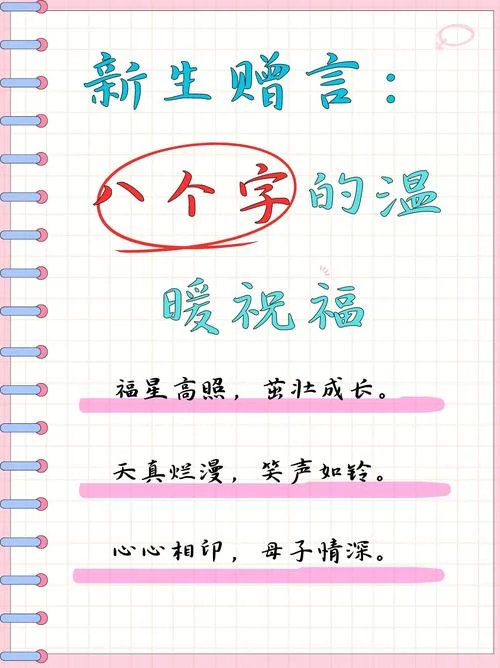 新生赠言：
八个字的温
暖祝福
福星高照，茁壮成长。
天真烂漫，笑声如铃。
心心相印，母子情深。